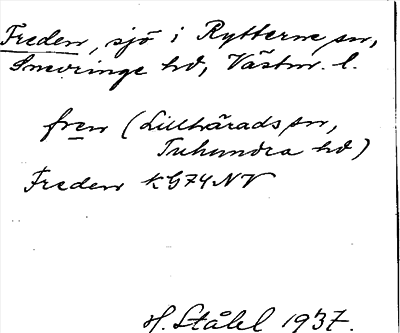 Freden, sjö i Rytterne sn,
Snevringe hd, Västm. l.
fren (Lillhärads sn,
Tuhundra hd)
Freden KG74NV
H. Ståhl 1937.